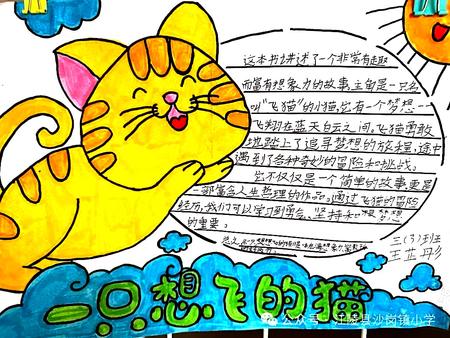 这本书讲述了一个非常有趣
而富有想象力的故事,主角是一只名
叫"飞猫"的小猫,它有一个梦想——
飞翔在蓝天白云之间。飞猫勇敢
地踏上了追寻梦想的旅程,途中
遇到了各种奇妙的冒险和挑战。
它不仅仅是一个简单的故事,更是
一部富含人生哲理的作品,通过飞猫的冒险
经历,我们可以学习到勇气、坚持和梦想
的重要。
三(3)班
王芷彤
一只想飞的猫
公众号·江陵县沙岗镇小学